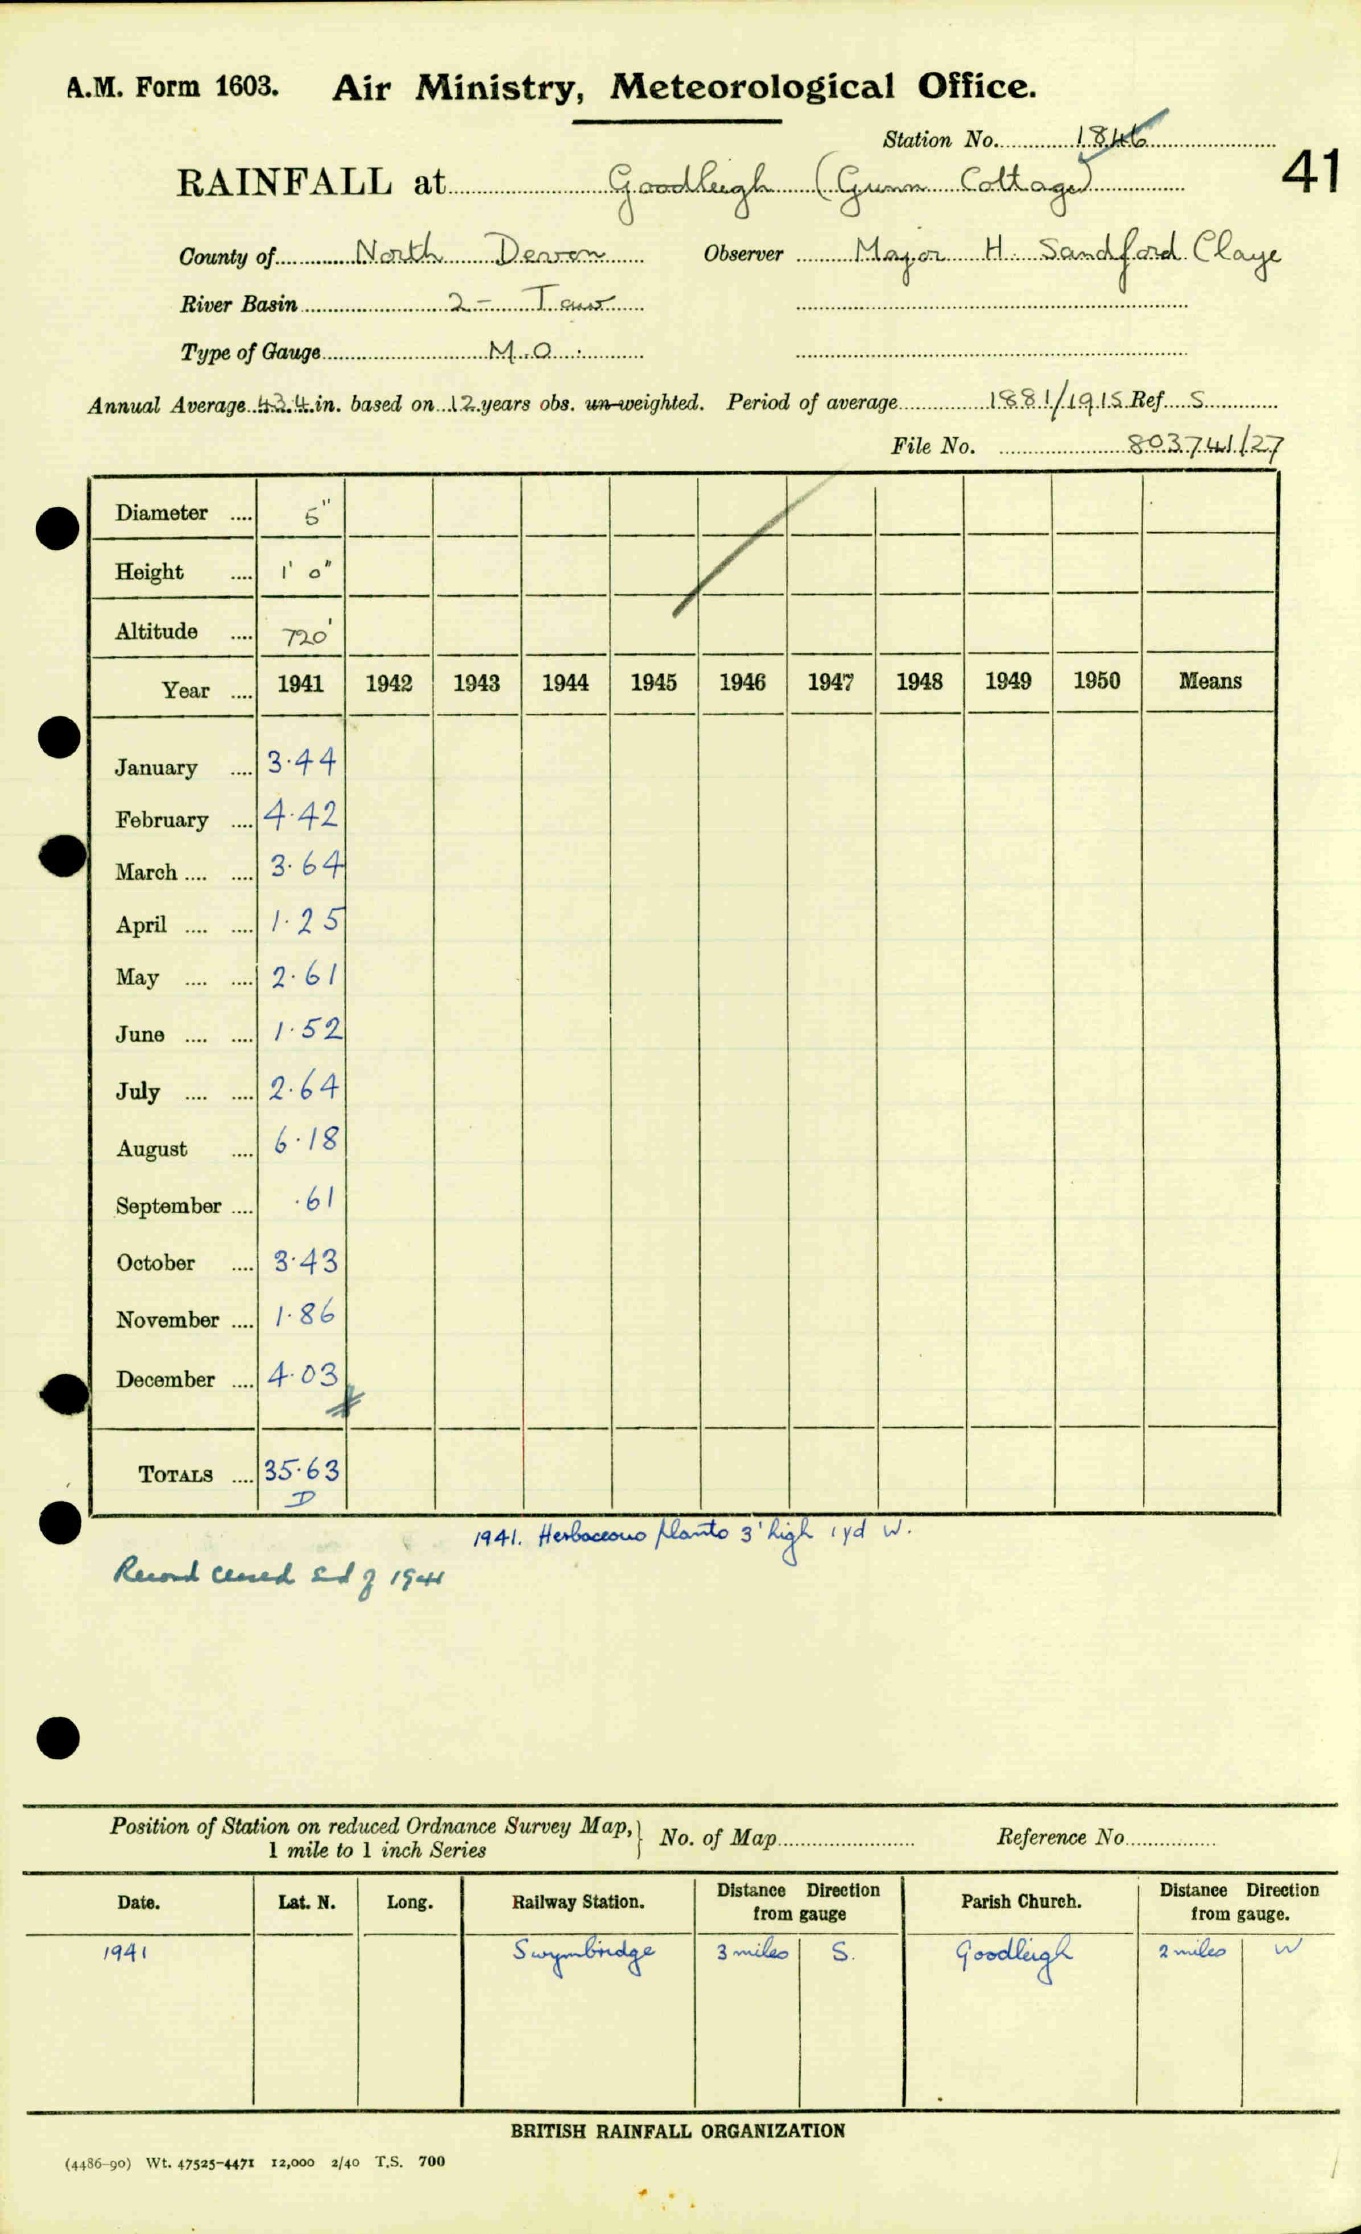 A.M. Form 1603. Air Ministry, Meteorological Office.
Station No. 1846
41
RAINFALL at Goodleigh (Gunn Cottage)
County of North Devon Observer Major H. Sandford Claye
River Basin 2 - Taw
Type of Gauge M.O.
Annual Average 43.4 in. based on 12 years obs. un-weighted. Period of average 1881/1915 Ref. S
File No. 803741/27
Diameter .... 5"
Height .... 1' 0"
Altitude .... 720'
Year .... 1941 1942 1943 1944 1945 1946 1947 1948 1949 1950 Means
January .... 3.44
February .... 4.42
March .... .... 3.64
April .... .... 1.25
May .... .... 2.61
June .... .... 1.52
July .... .... 2.64
August .... 6.18
September .... .61
October .... 3.43
November .... 1.86
December .... 4.03
TOTALS .... 35.63
D
1941. Herbaceous plants 3' high 1 yd W.
Record ceased end of 1941
Position of Station on reduced Ordnance Survey Map, } No. of Map Reference No.
1 mile to 1 inch Series
Date. Lat. N. Long. Railway Station. Distance Direction from gauge Parish Church. Distance Direction from gauge.
1941 Swymbridge 3 miles S. Goodleigh 2 miles W
BRITISH RAINFALL ORGANIZATION
(4486-90) Wt. 47525-4471 12,000 2/40 T.S. 700